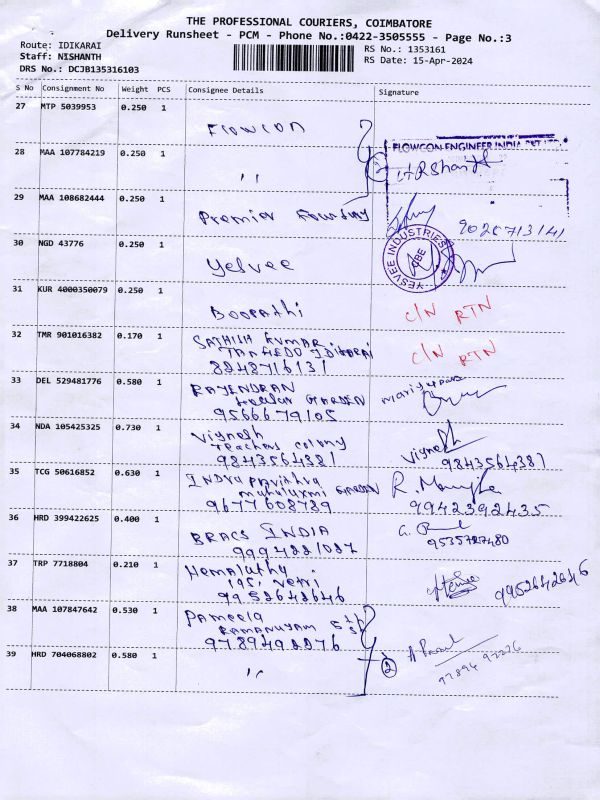 THE PROFESSIONAL COURIERS, COIMBATORE
Delivery Runsheet - PCM - Phone No.:0422-3505555 - Page No.:3
Route: IDIKARAI
RS No.: 1353161
Staff: NISHANTH
RS Date: 15-Apr-2024
DRS No.: DCJB135316103
S No Consignment No Weight PCS Consignee Details Signature
27 MTP 5039953 0.250 1
Flowcon
FLOWCON ENGINEER INDIA PVT LTD.
28 MAA 107784219 0.250 1
,,
2
29 MAA 108682444 0.250 1
Premier Foundry
9026713141
30 NGD 43776 0.250 1
Yesvee
YESVEE INDUSTRIES
CBE
31 KUR 4000350079 0.250 1
Boopathi
C/N RTN
32 TMR 901016382 0.170 1
SATHISH KUMAR
TANGEDO IDIKARAI
8248716131
C/N RTN
33 DEL 529481776 0.580 1
RAJENDRAN
GARDEN
9566679105
34 NDA 105425325 0.730 1
Vignesh
Teachers colony
9843564381
Vignesh
9843564381
35 TCG 50616852 0.630 1
INDYA Pravithva
mahaluxmi GARDEN
9677608739
9942392435
36 HRD 399422625 0.400 1
BRACS INDIA
9994221027
9535727480
37 TRP 7718804 0.210 1
Hemalatha
195, Vetri
9952642646
9952642646
38 MAA 107847642 0.530 1
Pameela
RAMANUJAM
9789492276
39 HRD 704068802 0.580 1
,,
2
97894 92276